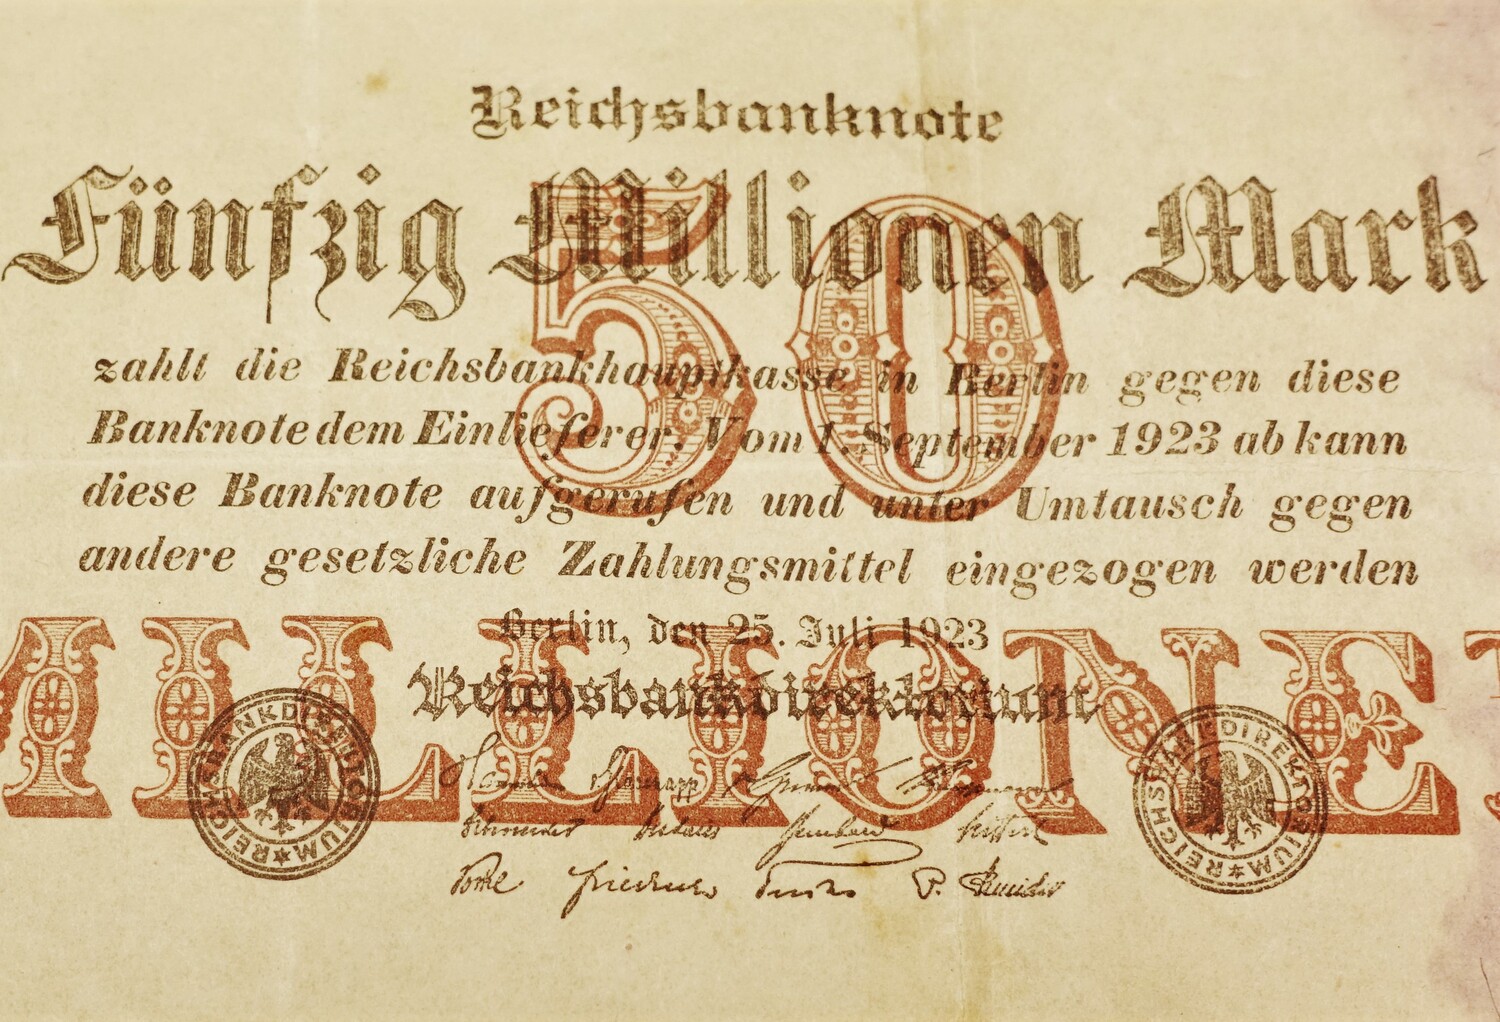 Reichsbanknote
Fünfzig Millionen Mark
50
zahlt die Reichsbankhauptkasse in Berlin gegen diese
Banknote dem Einlieferer. Vom 1. September 1923 ab kann
diese Banknote aufgerufen und unter Umtausch gegen
andere gesetzliche Zahlungsmittel eingezogen werden
Berlin, den 25. Juli 1923
Reichsbankdirektorium
MILLIONEN
REICHSBANKDIREKTORIUM
REICHSBANKDIREKTORIUM